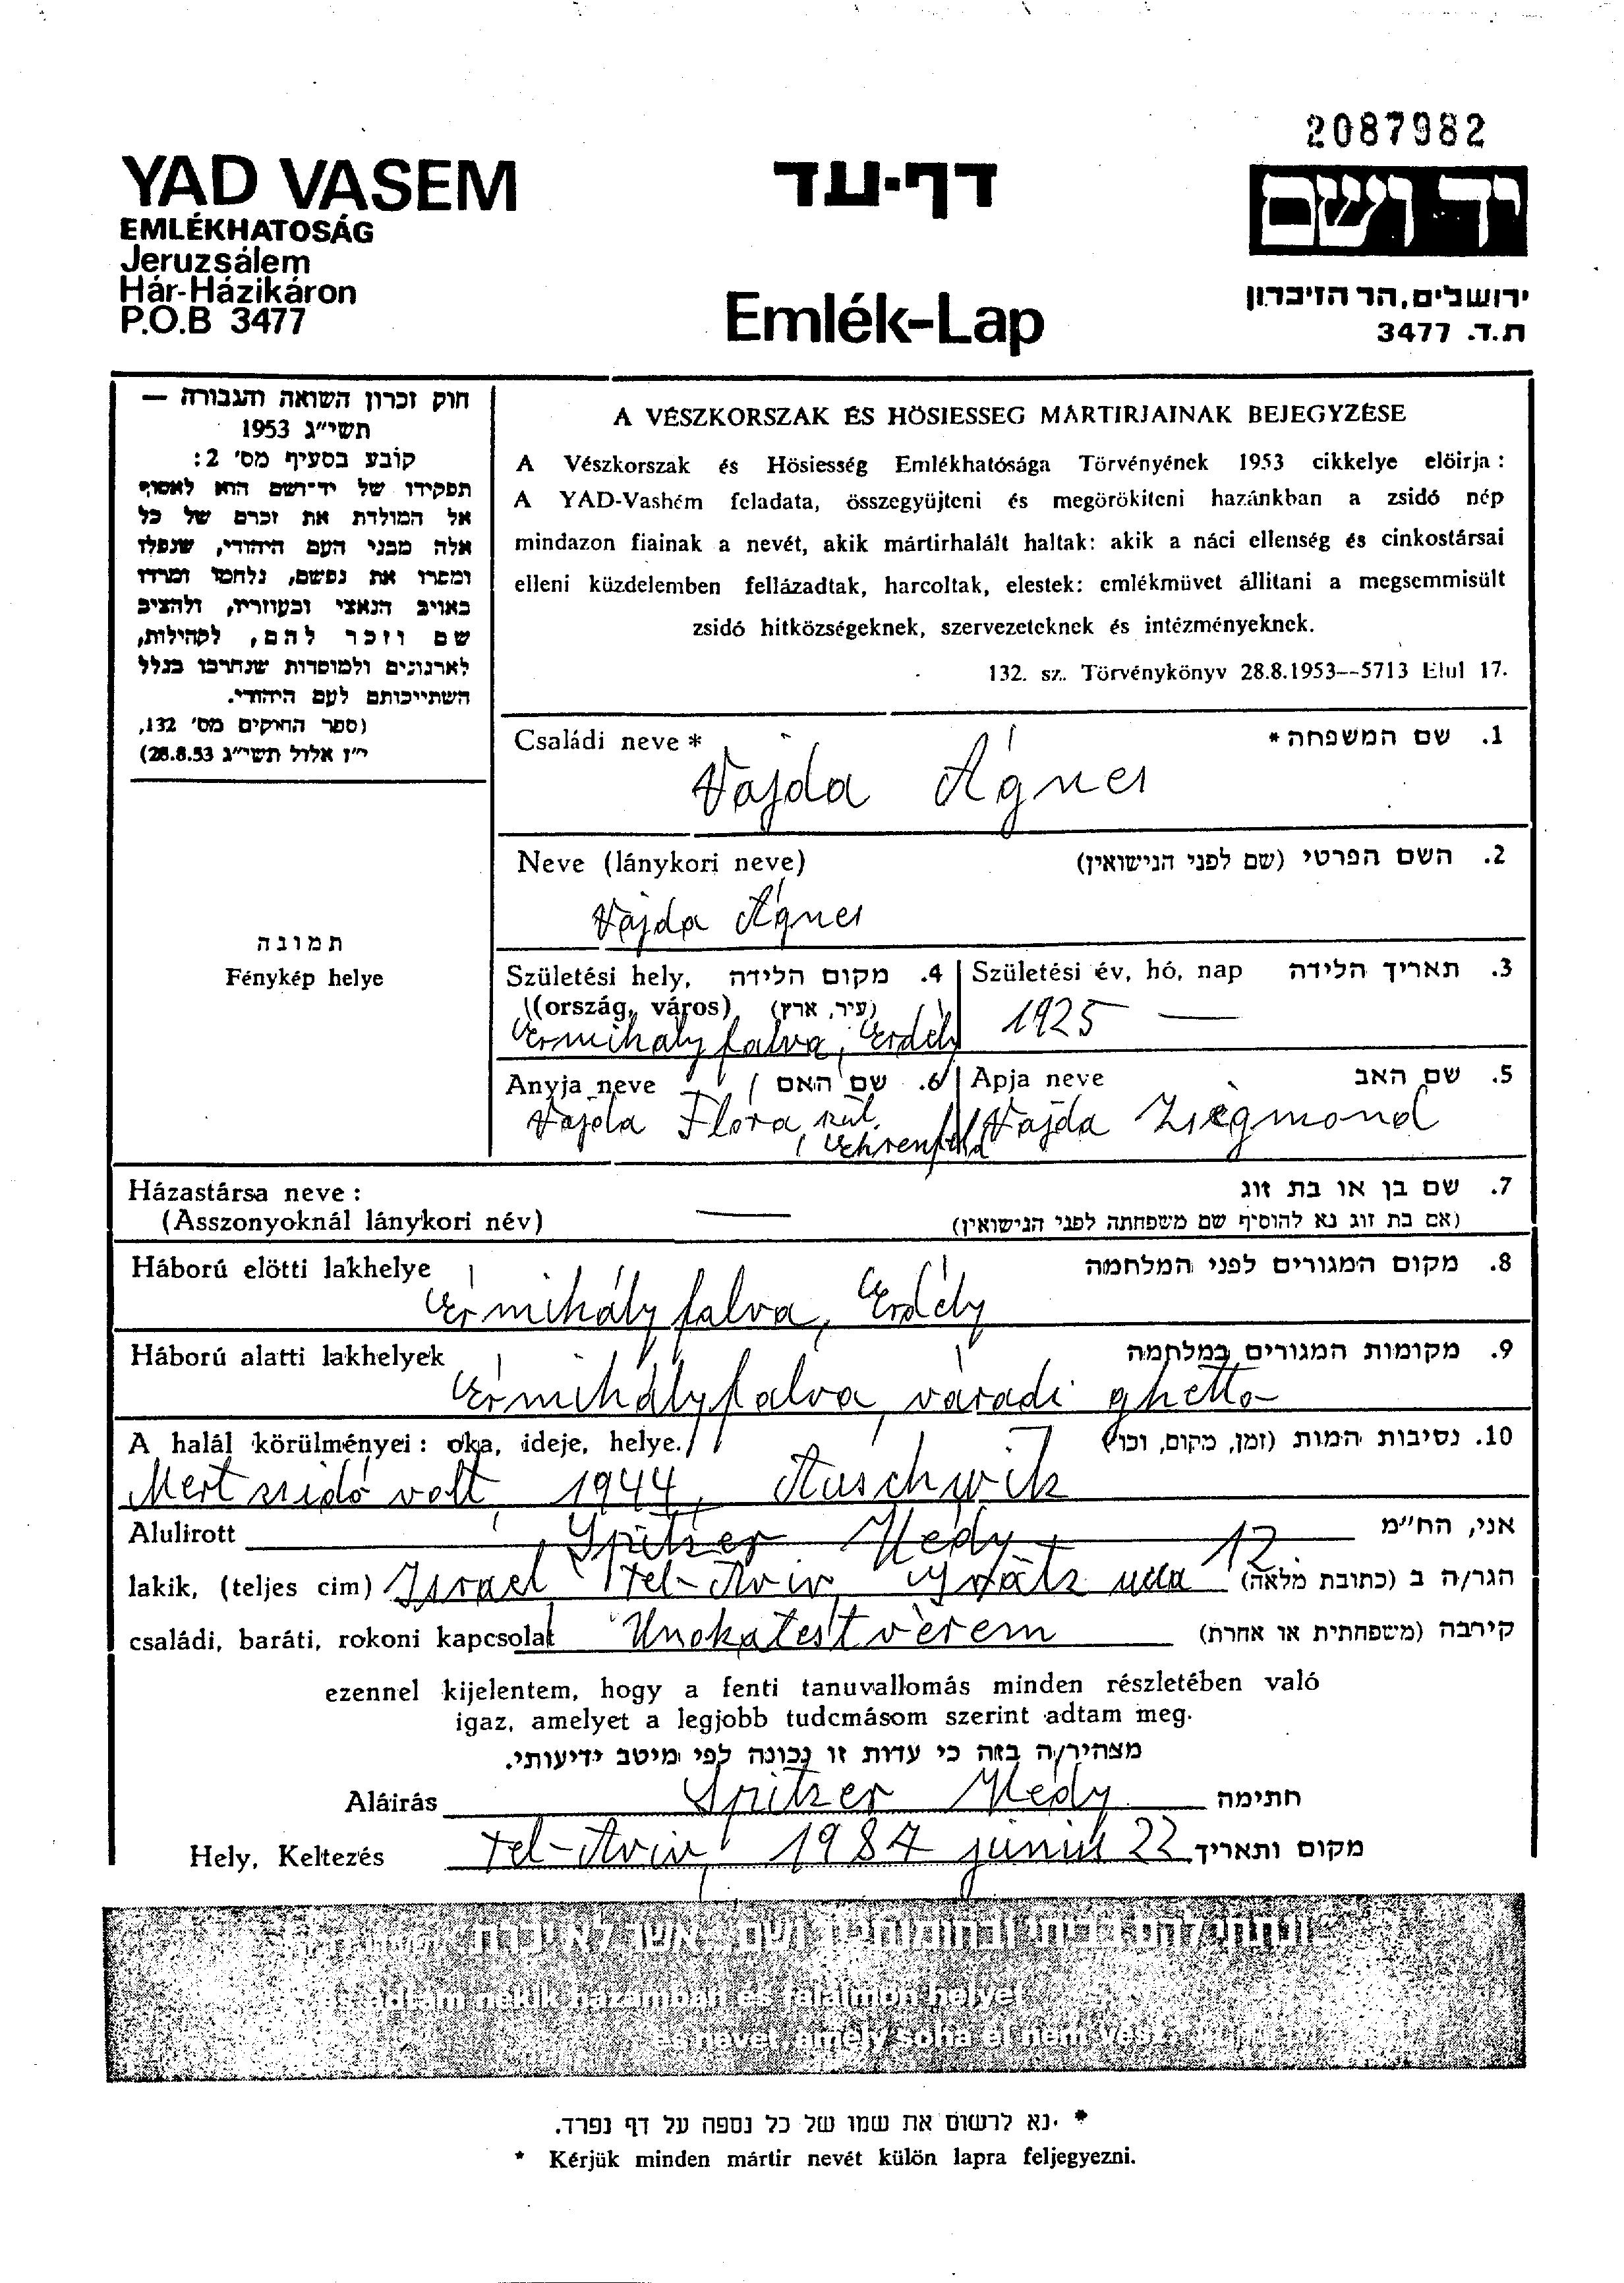 2087982
YAD VASEM
EMLÉKHATOSÁG
Jeruzsálem
Hár-Házikáron
P.O.B 3477
דף-עד
Emlék-Lap
יד ושם
ירושלים, הר הזיכרון
ת.ד. 3477
חוק זכרון השואה והגבורה —
תשי״ג 1953
קובע בסעיף מס' 2:
תפקידו של יד־ושם הוא לאסוף
אל המולדת את זכרם של כל
אלה מבני העם היהודי, שנפלו
ומסרו את נפשם, נלחמו ומרדו
באויב הנאצי ובעוזריו, ולהציב
שם וזכר להם, לקהילות,
לארגונים ולמוסדות שנחרבו בגלל
השתייכותם לעם היהודי.
(ספר החוקים מס' 132,
י״ז אלול תשי״ג 28.8.53)
תמונה
Fénykép helye
A VÉSZKORSZAK ÉS HÖSIESSEG MÁRTIRJAINAK BEJEGYZÉSE
A Vészkorszak és Hösiesség Emlékhatósága Törvényének 1953 cikkelye elöirja:
A YAD-Vashém feladata, összegyüjteni és megörökiteni hazánkban a zsidó nép
mindazon fiainak a nevét, akik mártirhalált haltak: akik a náci ellenség és cinkostársai
elleni küzdelemben fellázadtak, harcoltak, elestek: emlékmüvet állitani a megsemmisült
zsidó hitközségeknek, szervezeteknek és intézményeknek.
132. sz. Törvénykönyv 28.8.1953--5713 Elul 17.
Családi neve * 1. שם המשפחה*
Vajda Ágnes
Neve (lánykori neve) 2. השם הפרטי (שם לפני הנישואין)
Vajda Ágnes
Születési hely, 4. מקום הלידה
(ország, város) (עיר, ארץ)
Érmihályfalva, Erdély
Születési év, hó, nap 3. תאריך הלידה
1925 —
Anyja neve 6. שם האם
Vajda Flóra szül.
Ehrenfeld
Apja neve 5. שם האב
Vajda Zsigmond
Házastársa neve: 7. שם בן או בת זוג
(Asszonyoknál lánykori név) — (אם בת זוג נא להוסיף שם משפחתה לפני הנישואין)
Háború elötti lakhelye 8. מקום המגורים לפני המלחמה
Érmihályfalva, Erdély
Háború alatti lakhelyek 9. מקומות המגורים במלחמה
Érmihályfalva, váradi ghetto
A halál körülményei: oka, ideje, helye. 10. נסיבות המות (זמן, מקום, וכו')
Mert zsidó volt, 1944, Auschwitz
Alulirott Spitzer Hédy אני, הח״מ
lakik, (teljes cim) Israel, Tel-Aviv, utca 12 הגר/ה ב (כתובת מלאה)
családi, baráti, rokoni kapcsolat Unokatestvérem קירבה (משפחתית או אחרת)
ezennel kijelentem, hogy a fenti tanuvallomás minden részletében való
igaz, amelyet a legjobb tudcmásom szerint adtam meg.
מצהיר/ה בזה כי עדות זו נכונה לפי מיטב ידיעותי.
Aláirás Spitzer Hédy חתימה
Hely, Keltezés Tel-Aviv, 1984 június 22 מקום ותאריך
ונתתי להם בביתי ובחומותי יד ושם... אשר לא יכרת
és adtam nékik házamban és falaimon helyet
és nevet, amely soha el nem vész.
* נא לרשום את שמו של כל נספה על דף נפרד.
* Kérjük minden mártir nevét külön lapra feljegyezni.